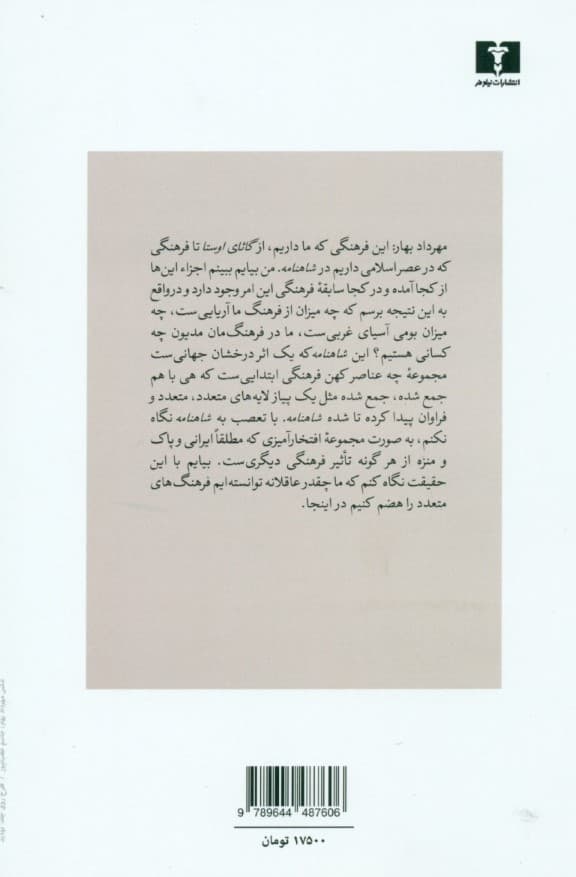 انتشارات نیلوفر
مهرداد بهار: این فرهنگی که ما داریم، از گاثای اوستا تا فرهنگی
که در عصر اسلامی داریم در شاهنامه. من بیایم ببینم اجزاء این‌ها
از کجا آمده و در کجا سابقۀ فرهنگی این امر وجود دارد و درواقع
به این نتیجه برسم که چه میزان از فرهنگ ما آریایی‌ست، چه
میزان بومی آسیای غربی‌ست، ما در فرهنگ‌مان مدیون چه
کسانی هستیم؟ این شاهنامه که یک اثر درخشان جهانی‌ست
مجموعۀ چه عناصر کهن فرهنگی ابتدایی‌ست که هی با هم
جمع شده، جمع شده مثل یک پیاز لایه‌های متعدد، متعدد و
فراوان پیدا کرده تا شده شاهنامه. با تعصب به شاهنامه نگاه
نکنم، به صورت مجموعۀ افتخارآمیزی که مطلقاً ایرانی و پاک
و منزه از هر گونه تأثیر فرهنگی دیگری‌ست. بیایم با این
حقیقت نگاه کنم که ما چقدر عاقلانه توانسته‌ایم فرهنگ‌های
متعدد را هضم کنیم در اینجا.
9 789644 487606
۱۷۵۰۰ تومان